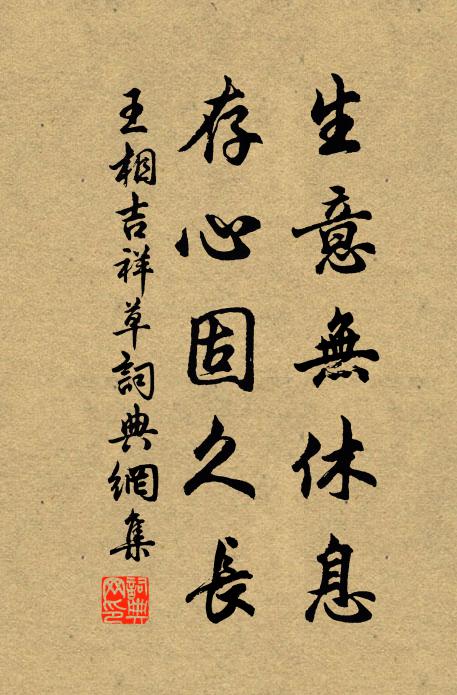 生意無休息
存心固久長
王相吉祥草詞典網集
詞典网印